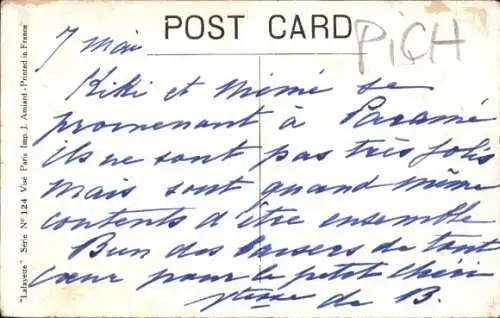 POST CARD
PiCH
7 Mai
Kiki et Mémé se
promenant à Paramé
ils ne sont pas très jolis
mais sont quand même
contents d'être ensemble
Bien des baisers de tout
cœur pour le petit chéri
de B.
"Lafayette" Série Nº 124 Visé Paris Imp. J. Amiard - Printed in France